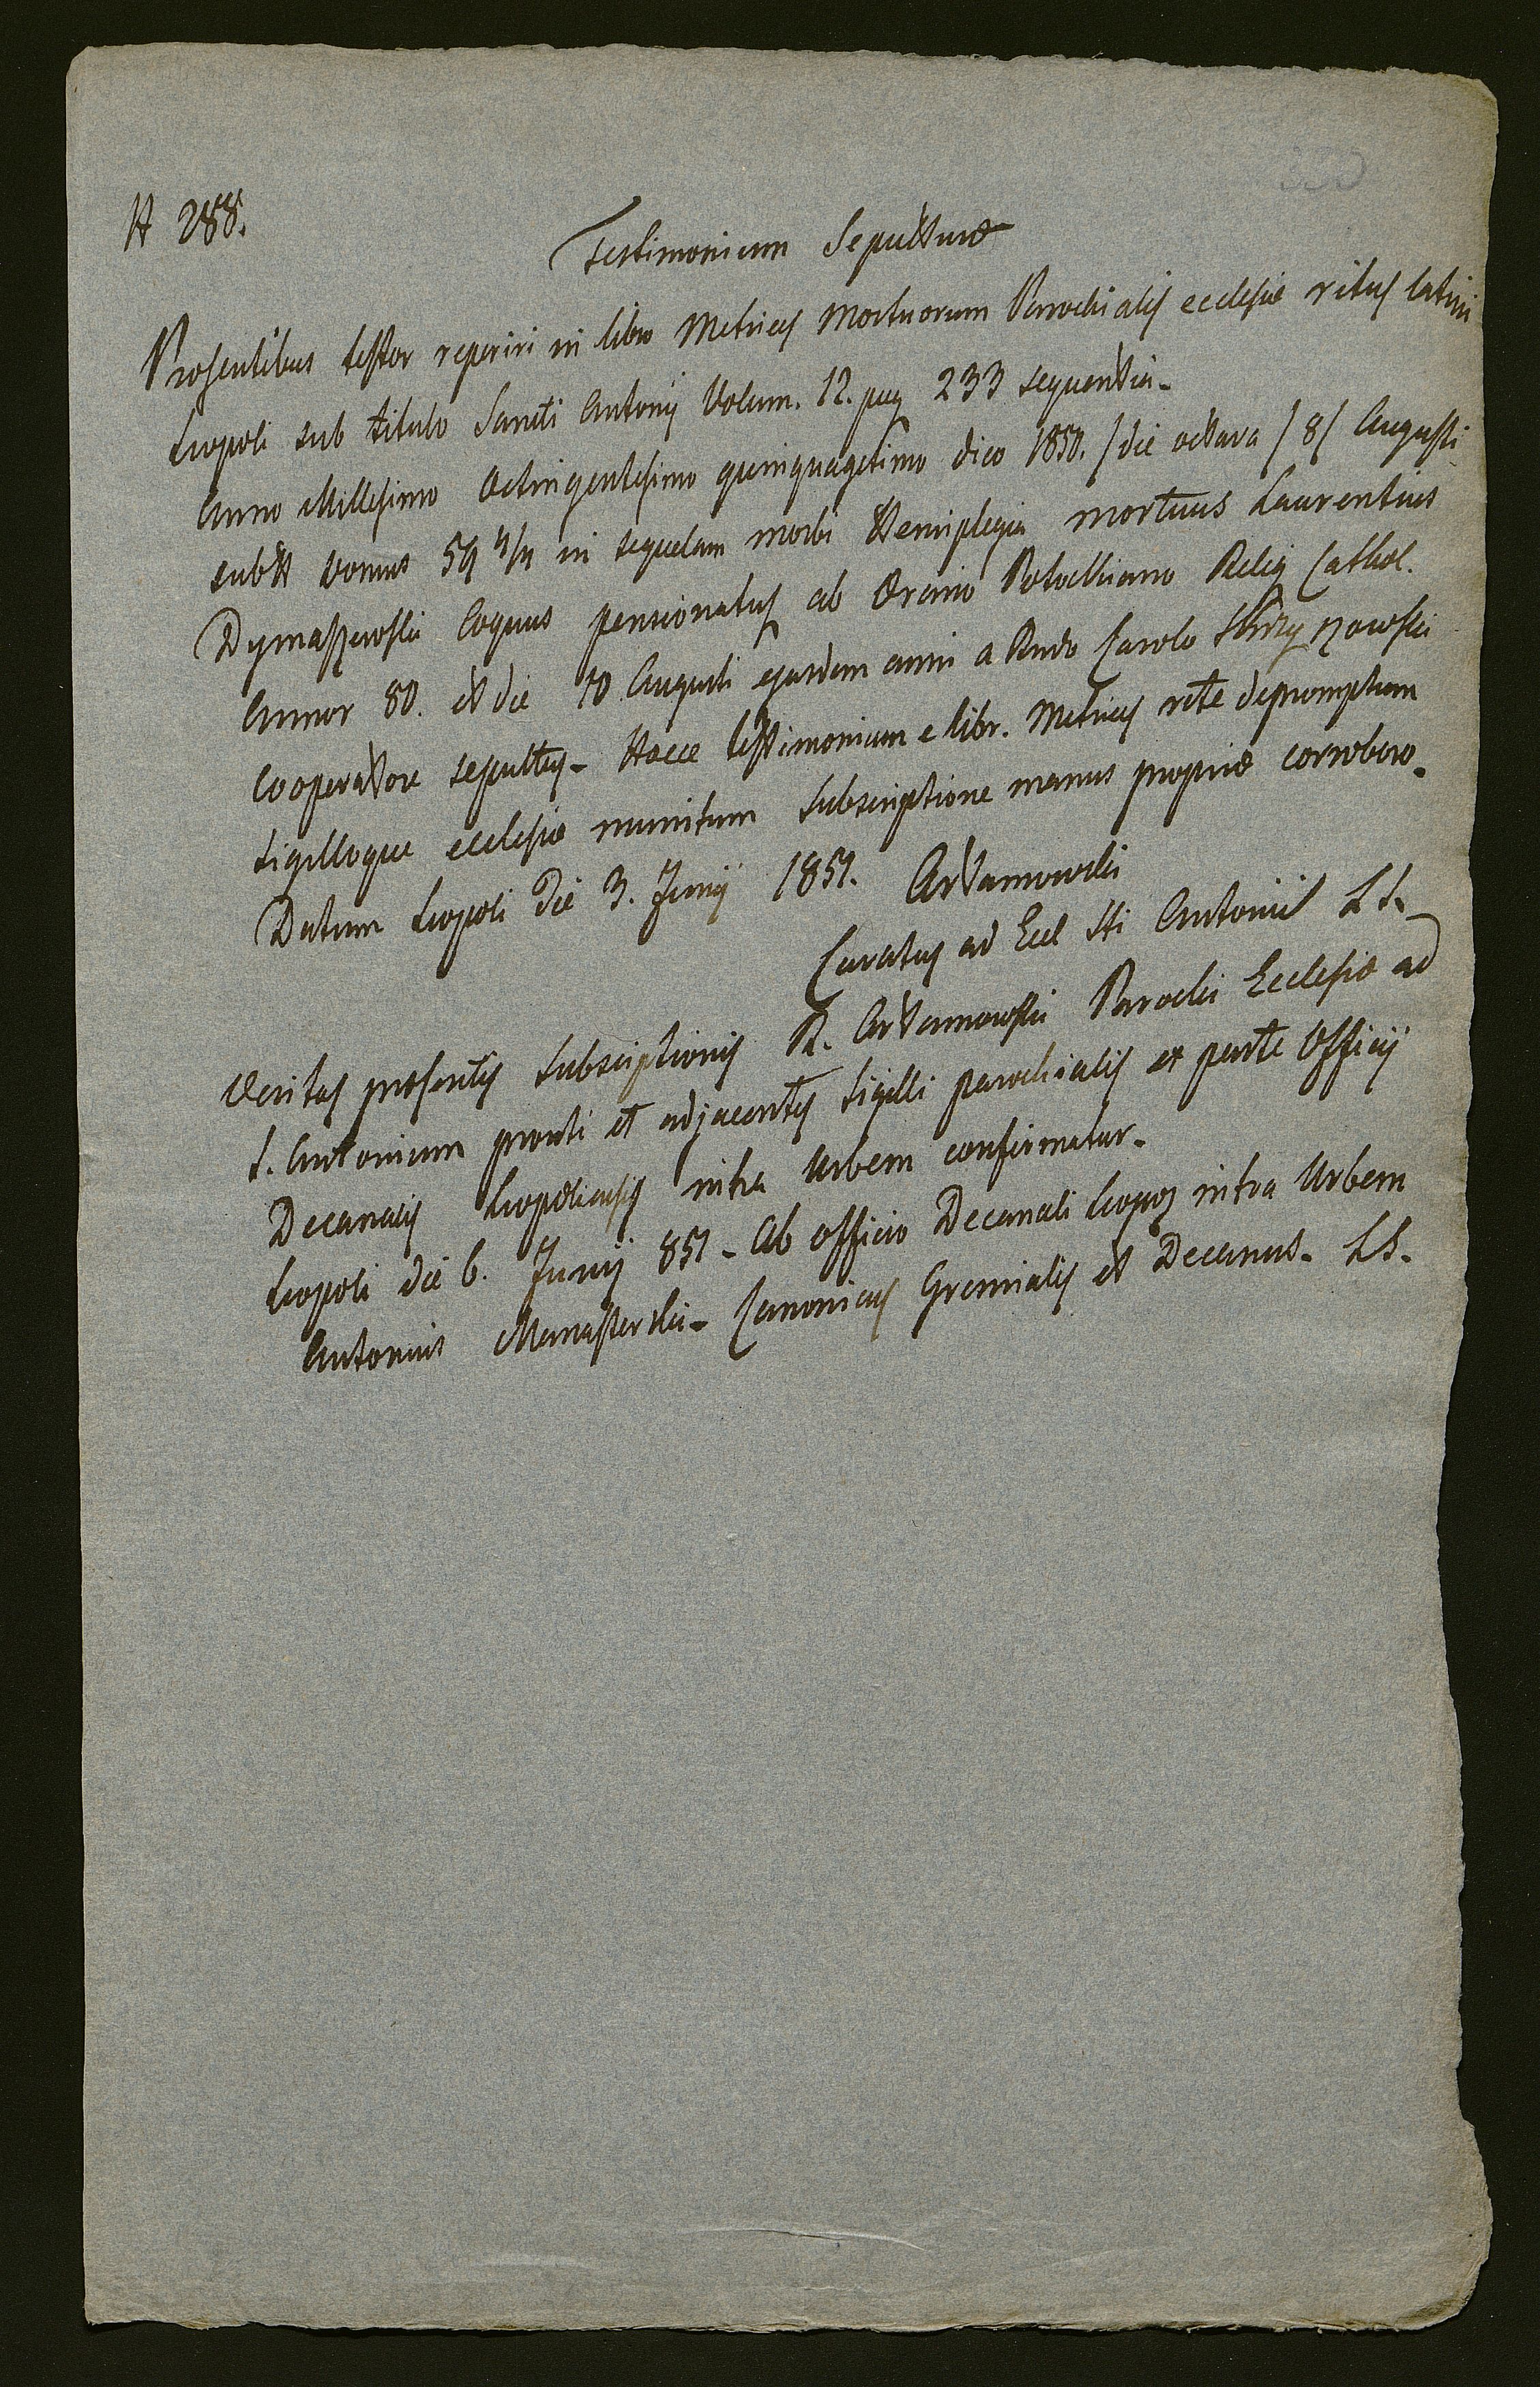 N 288.
Testimonium Sepulturæ
Præsentibus testor reperiri in libro Metrices Mortuorum Parochialis ecclesiæ ritus latini
Leopoli sub titulo Sancti Antonij Volum. 12. pag 233 sequentia -
Anno Millesimo Octingentesimo quinquagesimo dico 1850. / die octava / 8 / Augusti
sub N Domus 59 4/4 in sequelam morbi Hemiplegia mortuus Laurentius
Dymaszewski Coquus pensionatus ab Potockiano Relig Cathol.
Annor 80. et die 10 Augusti ejusdem anni a Rndo Carolo
Cooperatore sepultus - Hocce testimonium e libr. Metrices rite depromptum
sigilloque ecclesiæ munitum subscriptione manus propriæ corroboro.
Datum Leopoli die 3. Junij 1851. Artamowski
Curatus ad Eccl Sti Antonii L S.
Veritas præsentis subscriptionis R. Artamowski Parochi Ecclesiæ ad
S. Antonium prouti et adjacentis sigilli parochialis ex parte Officij
Decanalis Leopoliensis intra Urbem confirmatur -
Leopoli die 6. Junij 851 - Ab officio Decanali Leopoz intra Urbem
Antonius Manasterski - Canonicus Gremialis et Decanus - LS.